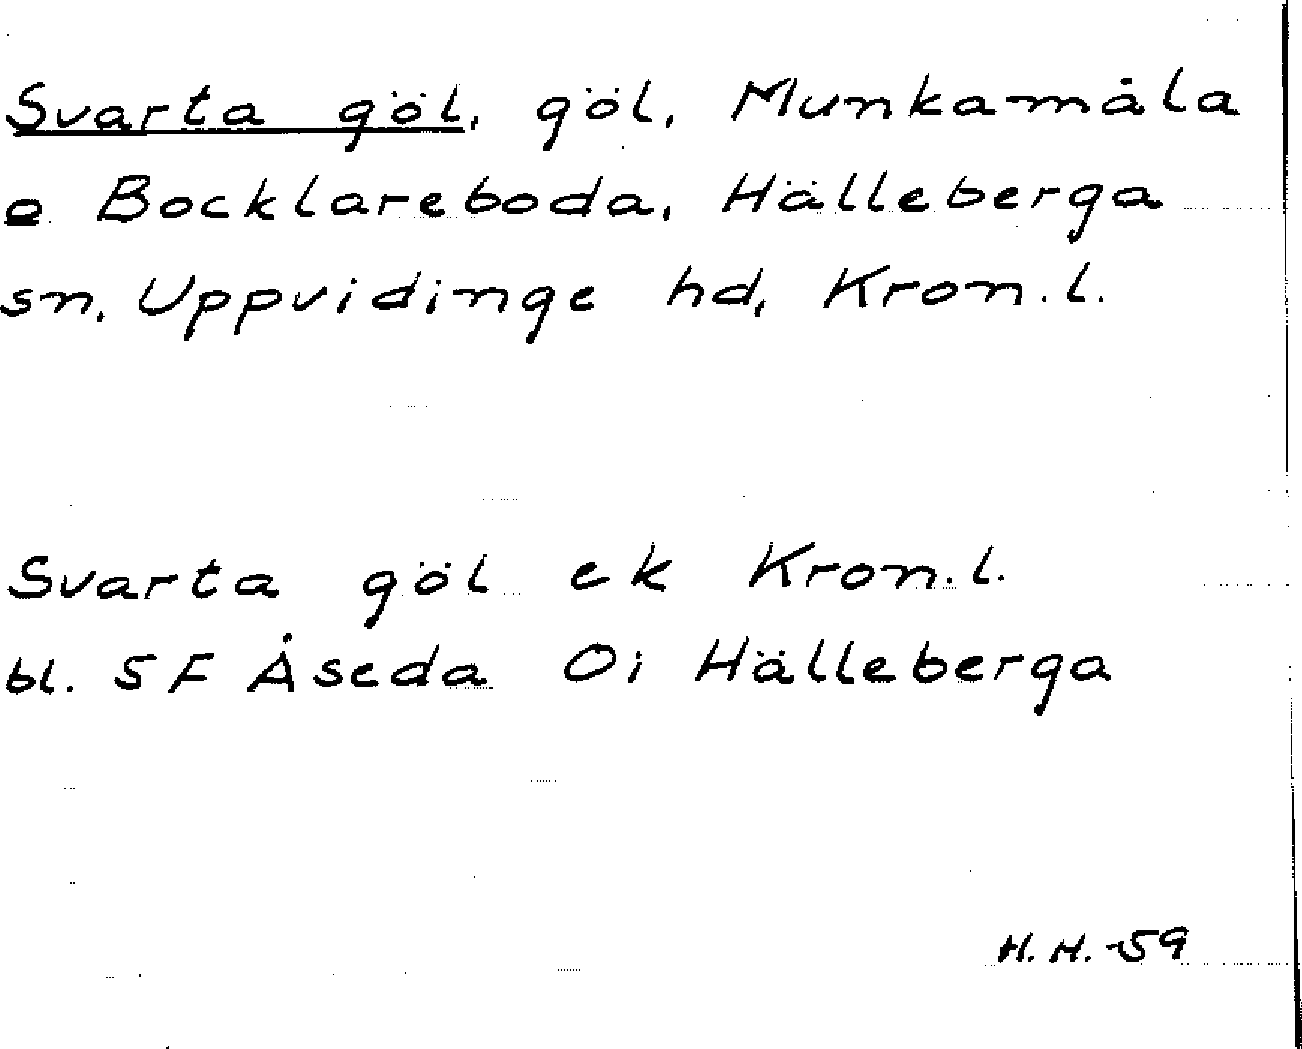 Svarta göl, göl, Munkamåla
o Bocklareboda, Hälleberga
sn, Uppvidinge hd, Kron.l.
Svarta göl ek Kron.l.
bl. 5F Åseda Oi Hälleberga
H.H.-59